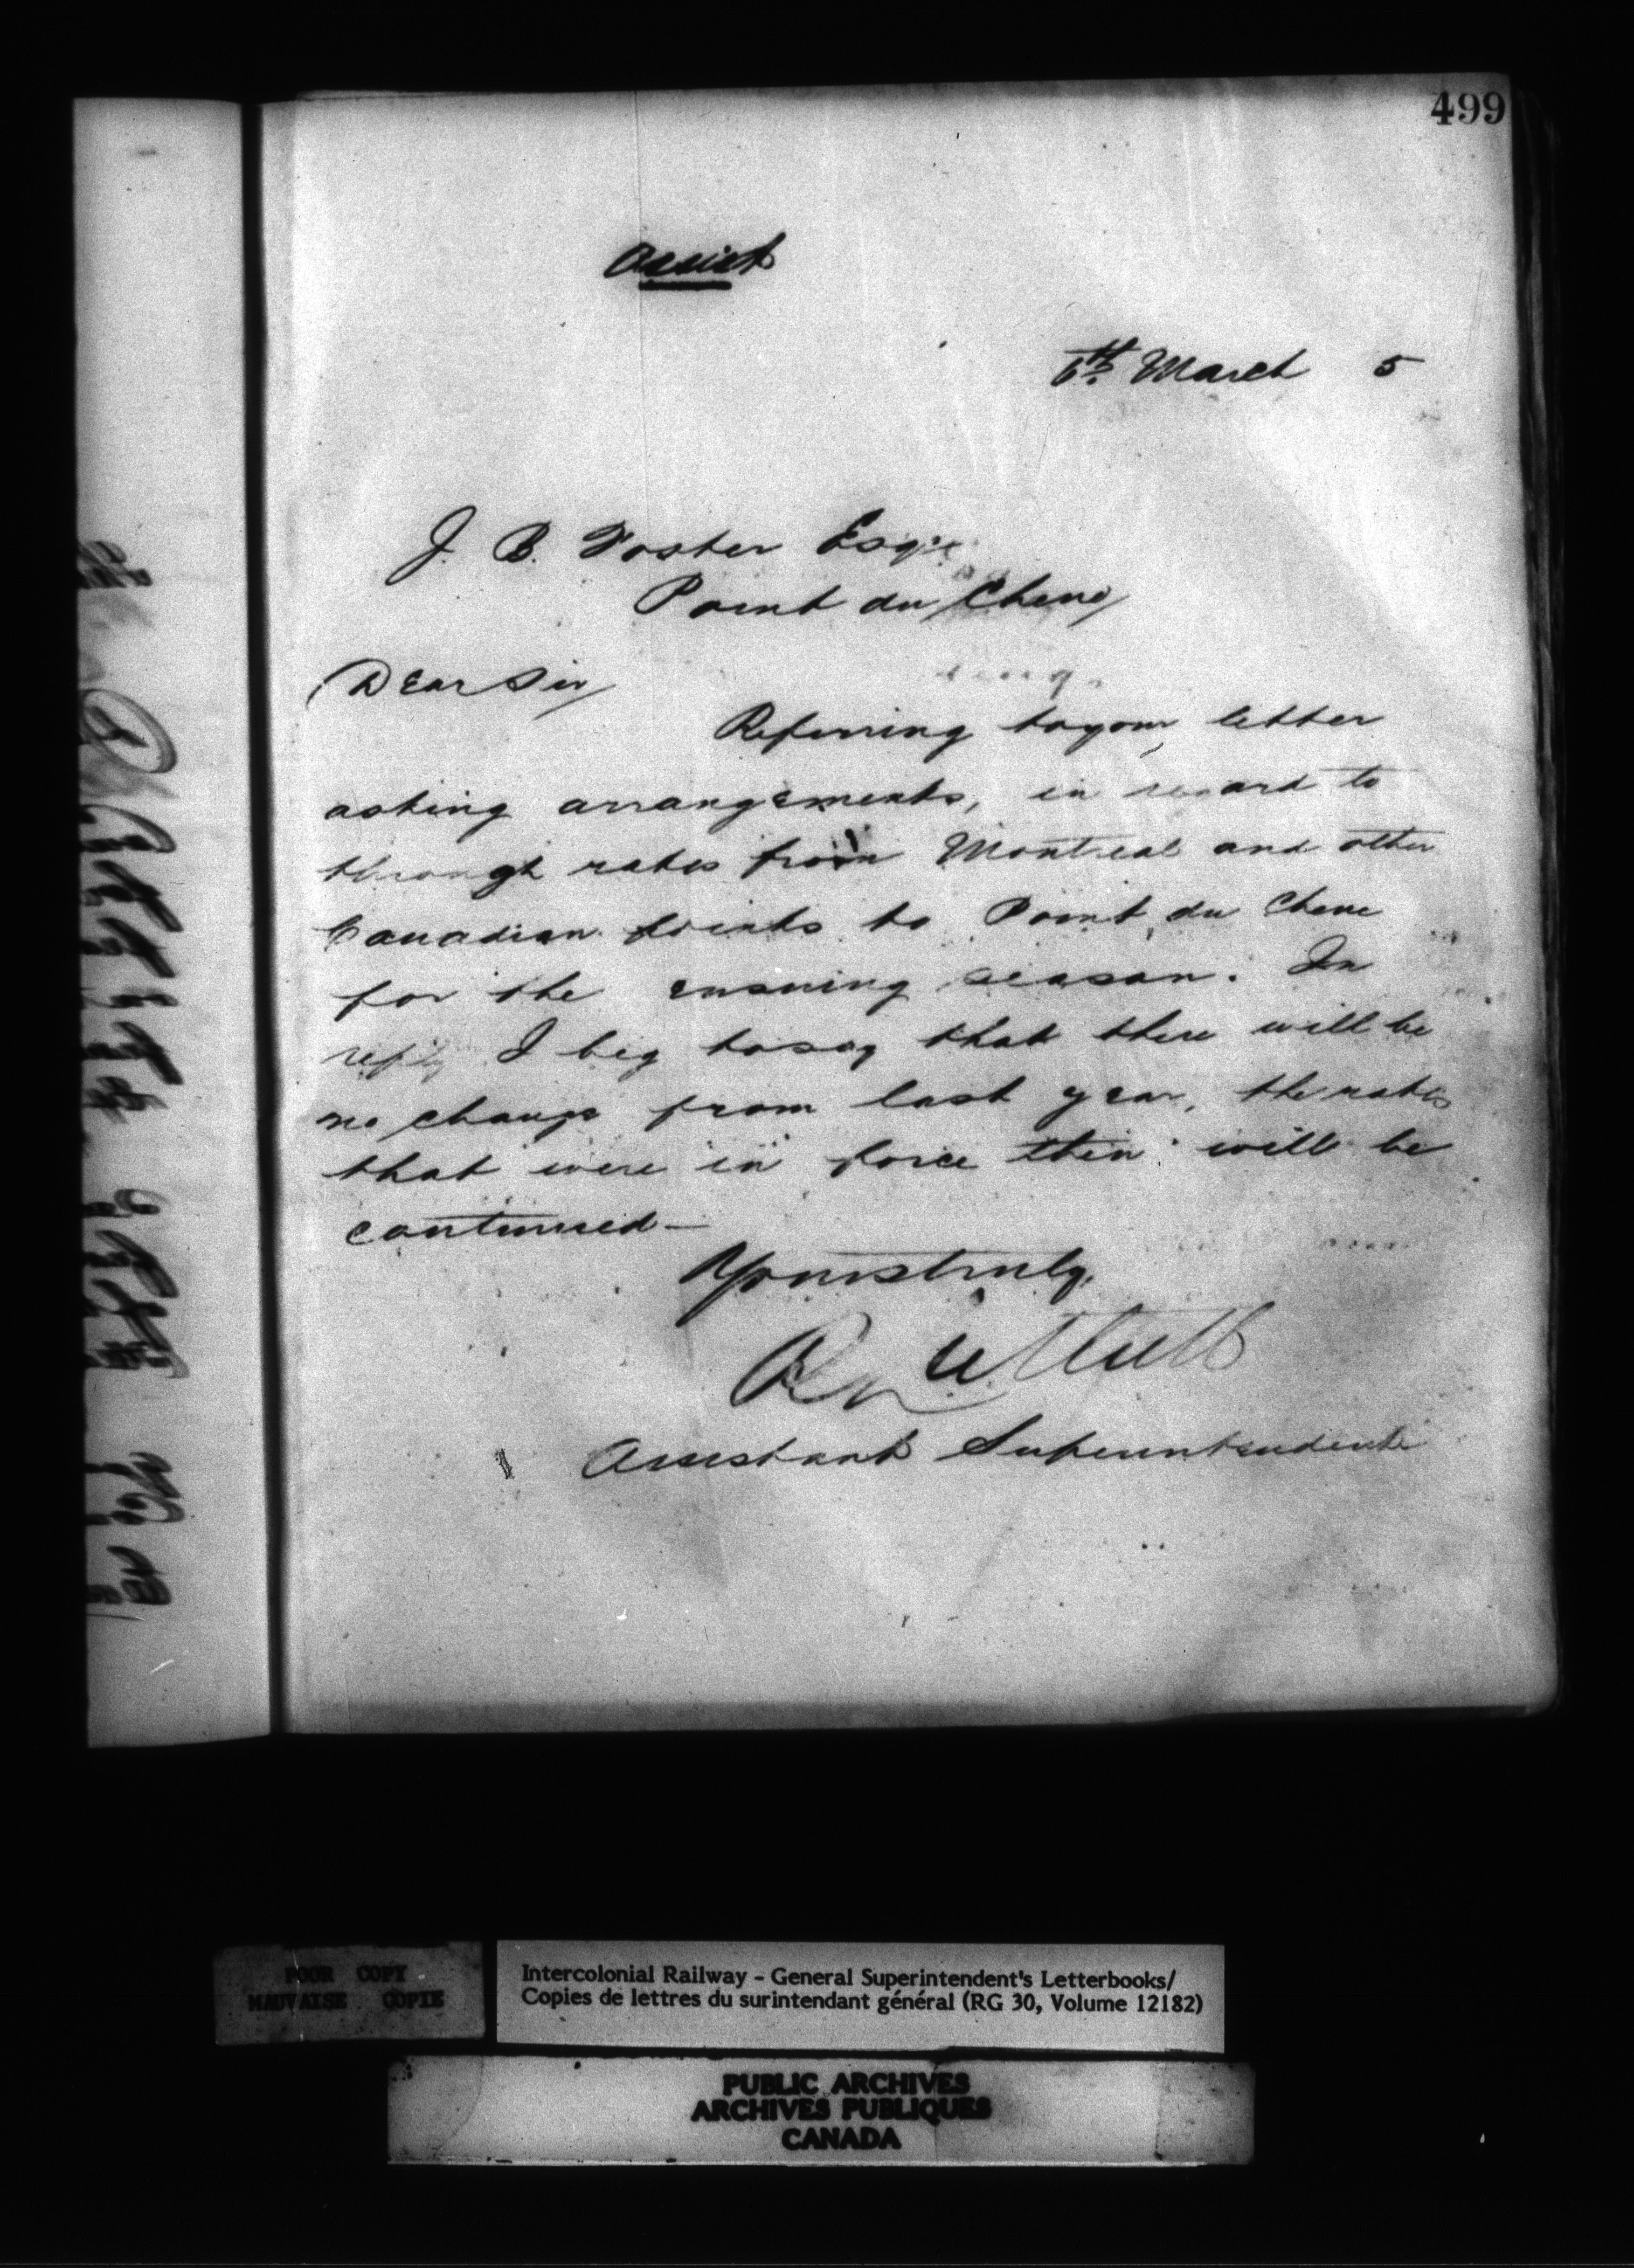 499
Assist
6th March 5
J. B. Foster Esqre
Point du Chene
Dear Sir
Referring to your letter
asking arrangements, in regard to
through rates from Montreal and other
Canadian points to Point du Chene
for the ensuing season. In
reply I beg to say that there will be
no change from last year, the rates
that were in force then will be
continued —
Yours truly,
Assistant Superintendent
POOR COPY
MAUVAISE COPIE
Intercolonial Railway - General Superintendent's Letterbooks/
Copies de lettres du surintendant général (RG 30, Volume 12182)
PUBLIC ARCHIVES
ARCHIVES PUBLIQUES
CANADA